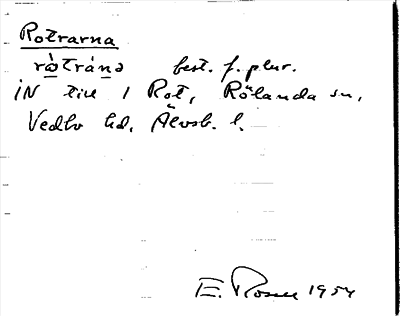 Rotrarna
rò̱tránə best. f. plur.
IN till 1 Rot, Rölanda sn,
Vedbo hd, Älvsb. l.
E. Rosell 1954